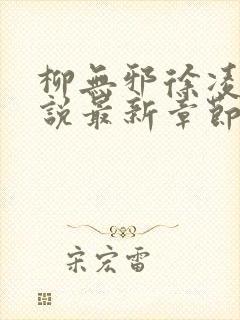 柳無邪徐凌
說最新章節
宋宏雷